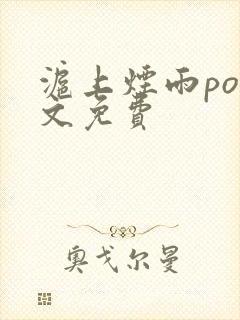 滬上煙雨po
文免費
奥戈尔曼